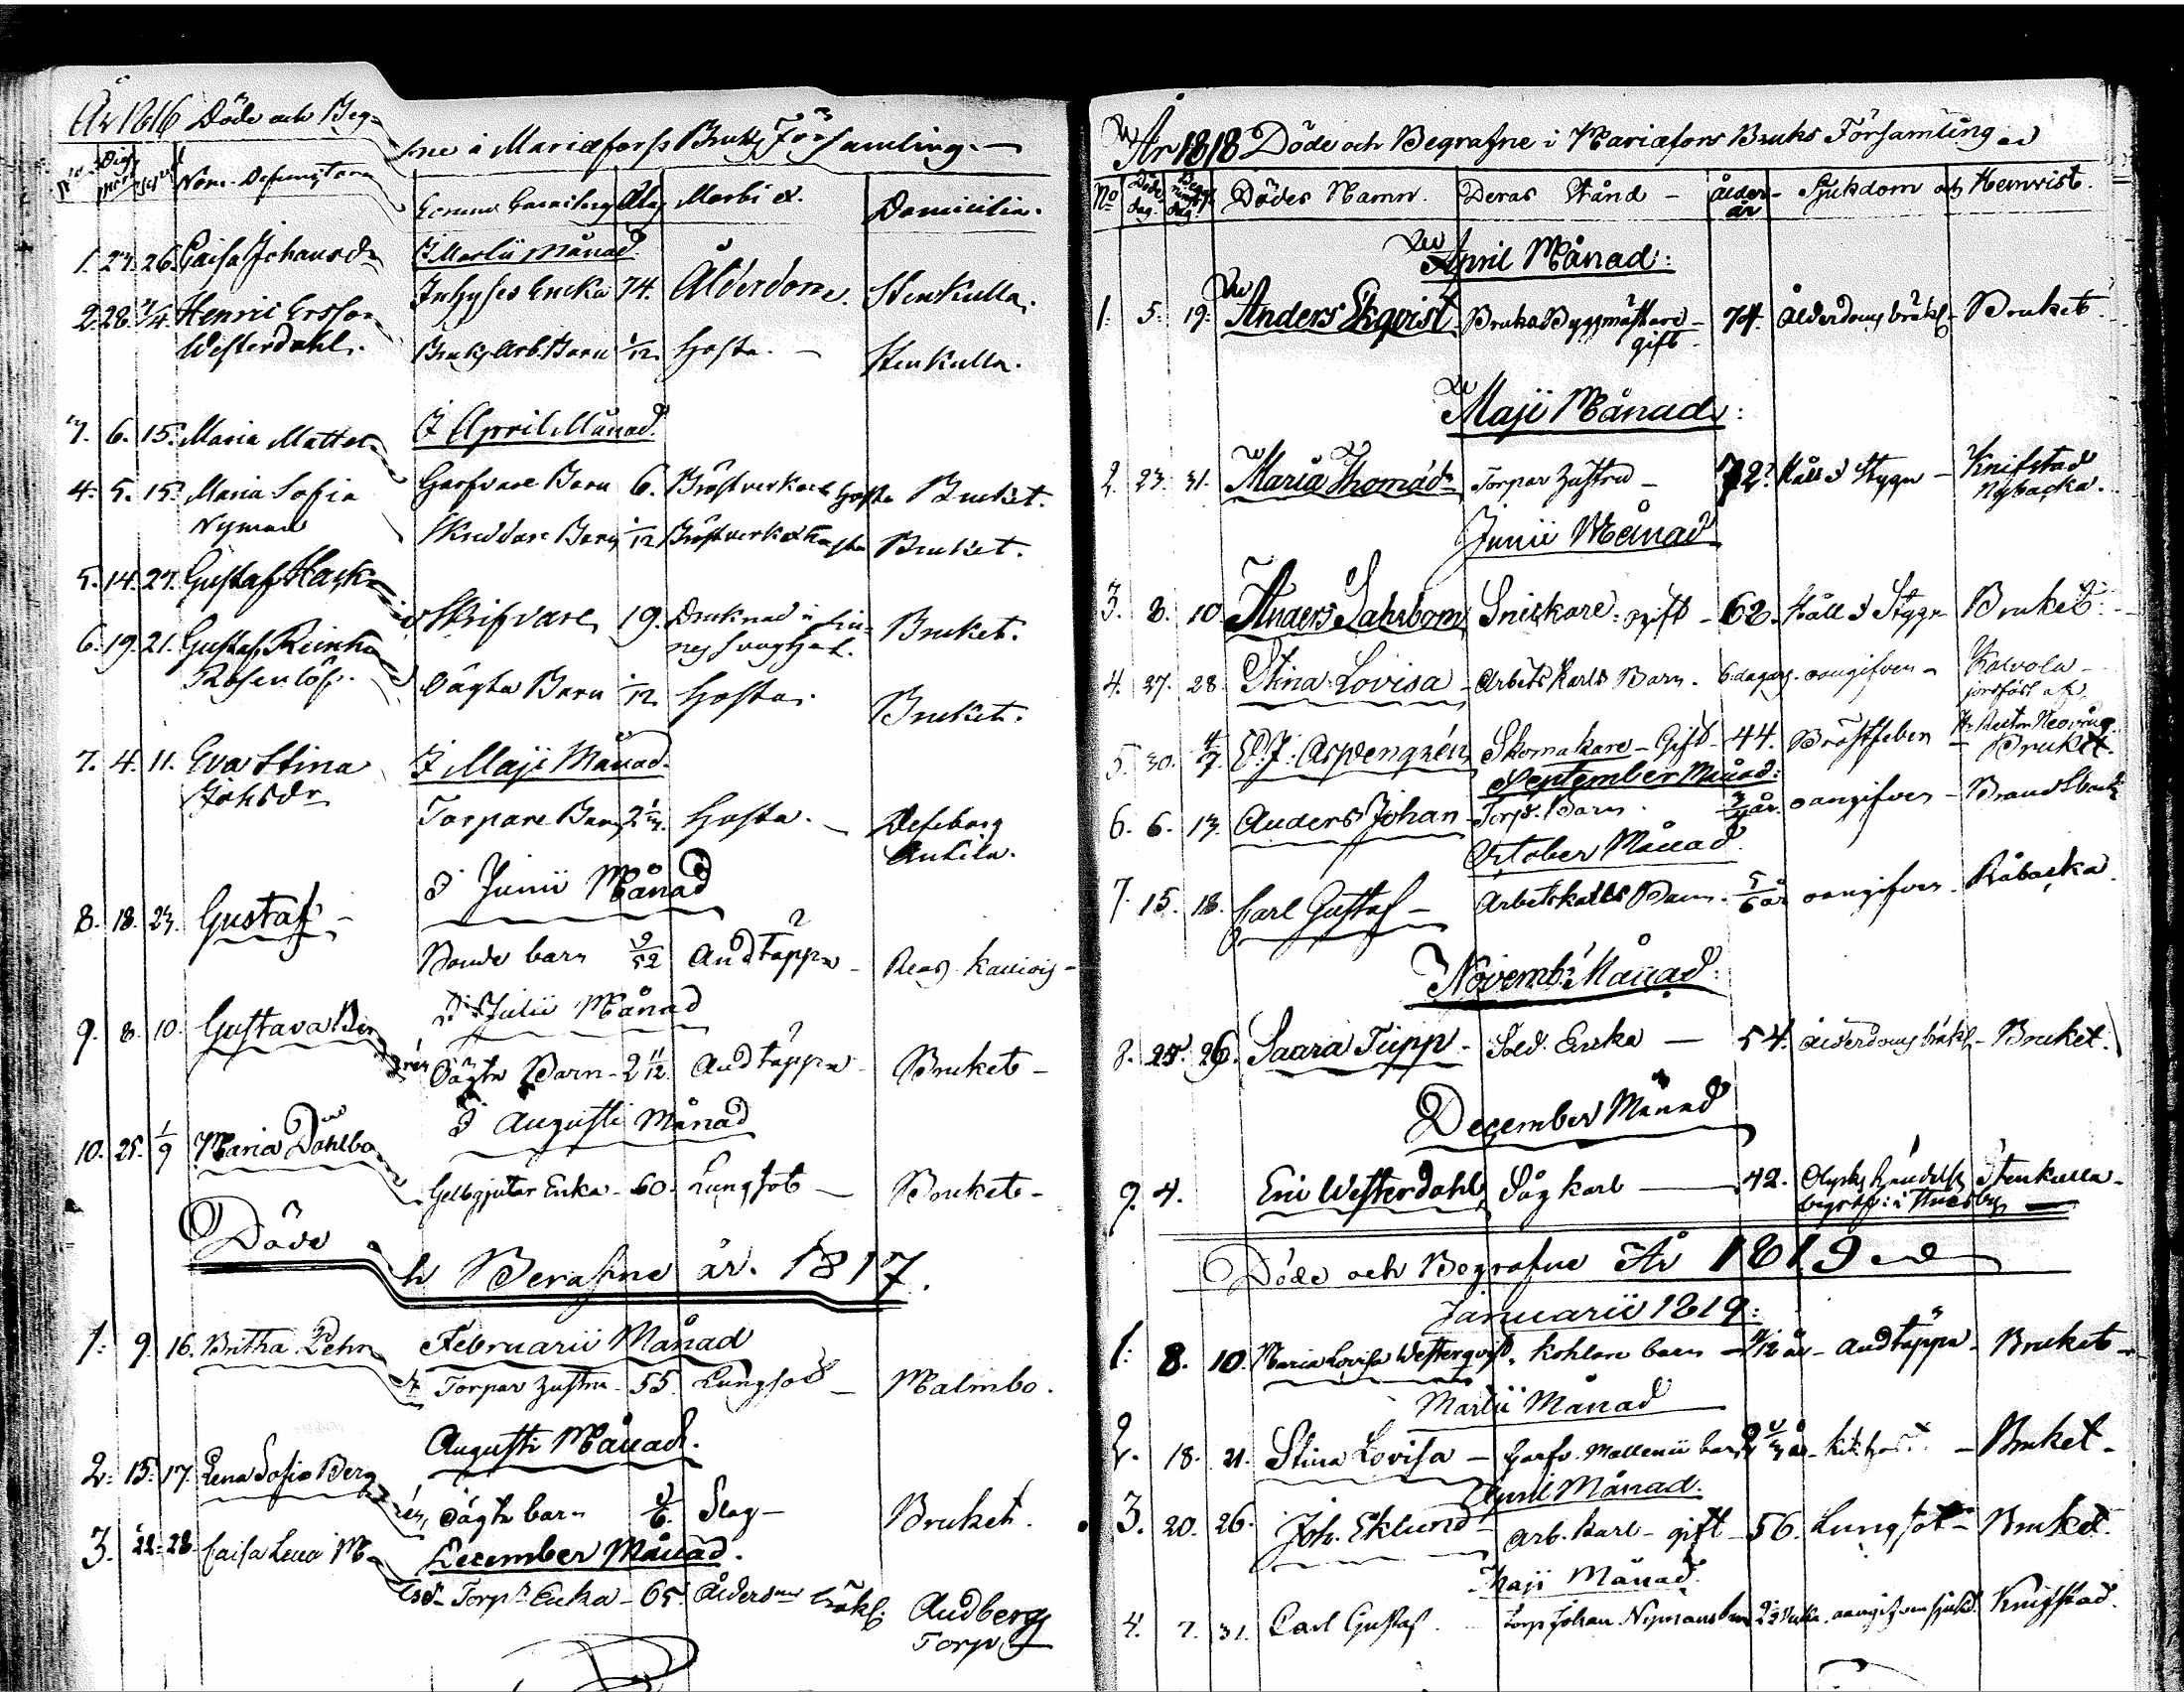 År 1816 Döde och Begrafne i Mariæfors Bruks Församling.
No. Nom. Defunctorum Ålder Morbi &. Domicilia.
I Martii Månad.
1. 23. 26. Caisa Johansdr Inhyses Encka 74. Ålderdom. Stenkulla.
2. 28. 7/4. Henric Ersson Bruks Arb. Barn 1/12 Hosta. – Stenkulla.
Westerdahl.
I April Månad.
3. 6. 15. Maria Mattsdr Garfvare Barn 6. Bröstverk och Hosta Bruket.
4. 5. 15. Maria Sofia Skreddare Barn Bröstverk & Hosta Bruket.
Nyman
5. 14. 27. Gustaf Skrifvare 19. Druknad i Bruket.
6. 19. 21. Gustaf Oägta Barn Hosta. Bruket.
Rosenlöf.
I Maji Månad.
7. 4. 11. Eva Stina Torpare Barn Hosta. –
Johsdr Antila.
I Junii Månad
8. 18. 23. Gustaf – Bonde barn Andtäppa –
I Julii Månad
9. 8. 10. Gustava Oägta Barn – 2 11/12 Andtäppa – Bruket –
I Augusti Månad
10. 25. 1/9 Maria Dahlbom Gelbgjutar Enka – 60. Lungsot – Bruket –
Döde och Berafne år. 1817.
Februarii Månad
1. 9. 16. Britha Pehrsdr Torpar hustru – 55. Lungsot – Malmbo.
Augusti Månad.
2. 15. 17. Lena Sofia Oägta barn Slag – Bruket.
December Månad.
3. 22. 28. Caisa Lena Torp. Enka – 65. Ålderdoms bräkl. Audberg
Torp
År 1818 Döde och Begrafne i Mariæfors Bruks Församling
No Döds dag. Begrafnings dag Dödes Namn. Deras Stånd – Ålder år Sjukdom och Hemvist.
April Månad:
1. 5. 19. Anders Ekqvist Bruks Byggmästare – 74. Ålderdoms bräkl. – Bruket.
gift.
Maji Månad:
2. 23. 31. Maria Thomædr Torpar hustru – 72. Håll & Stygn – Knifstad
Nybacka.
Junii Månad
3. 8. 10. Anders Snickare: gift – 62. Håll & Stygn Bruket.
4. 27. 28. Stina Lovisa – Arbets Karls Barn. 6 dagar. oangifven – Kalvola –
5. 30. 4/7. Aspengrén Skomakare – Gift – 44. Bröstfeber – Bruket.
September Månad:
6. 6. 13. Anders Johan – Torp. Barn. oangifven –
October Månad.
7. 15. 18. Carl Gustaf – Arbetskarls Barn. 5/6 år oangifven – Råbacka.
Novemb. Månad:
8. 25. 26. Saara Tupp – Sold. Enka – 54. ålderdoms bräkl. – Bruket.
December Månad
9. 4. Eric Westerdahl Sågkarl – 42. Olycks händelse Stenkulla –
Döde och Begrafne År 1819
Januarii 1819:
1. 8. 10. Maria Lovisa Westerqvist. Kohlare barn – Andtäppa – Bruket –
Martii Månad
2. 18. 21. Stina Lovisa – Garfv. Mallenii barn Kikhosta – Bruket –
April Månad.
3. 20. 26. Joh. Eklund – arb. karl – gift – 56. Lungsot – Bruket.
Maji Månad.
4. 7. 31. Carl Gustaf. Torp Johan Nymans barn Knifstad.